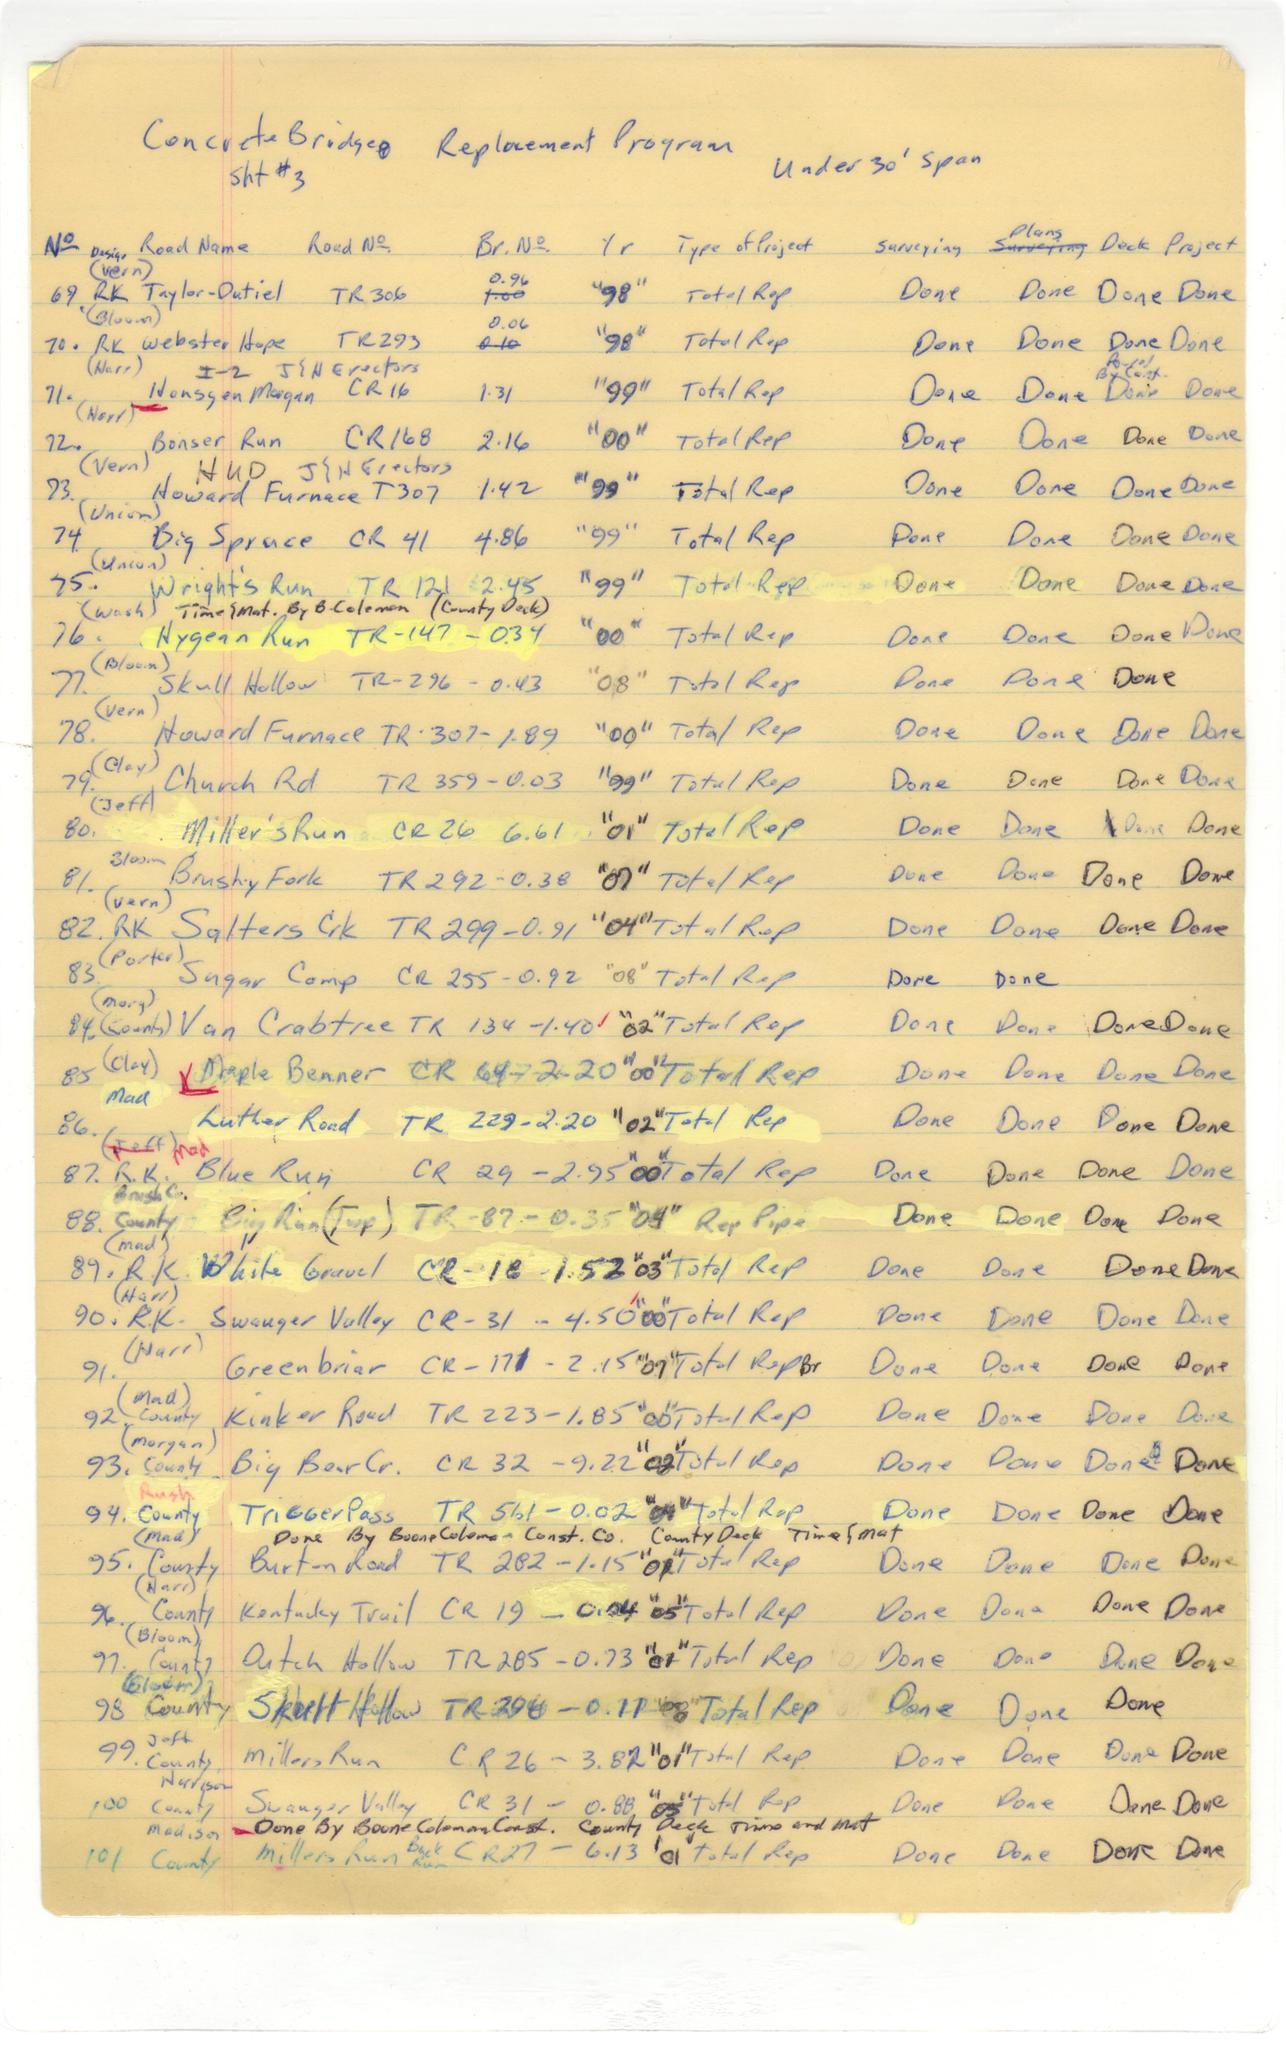 Concrete Bridge Replacement Program
Sht #3 Under 30' Span
No Design Road Name Road No. Br. No. Yr Type of Project Surveying Plans Surveying Deck Project
(Vern) 0.96
69. RK Taylor-Dutiel TR 306 1.00 "98" Total Rep Done Done Done Done
(Bloom) 0.06
70. RK Webster Hope TR 293 0.10 "98" Total Rep Done Done Done Done
(Harr) I-2 J&H Erectors By Cont.
71. Hansgen Morgan CR 16 1.31 "99" Total Rep Done Done Done Done
(Harr)
72. Bonser Run CR 168 2.16 "00" Total Rep Done Done Done Done
(Vern) HUD J&H Erectors
73. Howard Furnace T307 1.42 "99" Total Rep Done Done Done Done
(Union)
74 Big Spruce CR 41 4.86 "99" Total Rep Done Done Done Done
(Union)
75. Wright's Run TR 121 2.45 "99" Total Rep Done Done Done Done
(Wash) Time & Mat. By B. Coleman (County Deck)
76. Hygean Run TR-147 - 0.34 "00" Total Rep Done Done Done Done
(Bloom)
77. Skull Hollow TR-296 - 0.43 "08" Total Rep Done Done Done
(Vern)
78. Howard Furnace TR-307 - 1.89 "00" Total Rep Done Done Done Done
(Clay)
79. Church Rd TR 359 - 0.03 "99" Total Rep Done Done Done Done
(Jeff)
80. Miller's Run CR 26 6.61 "01" Total Rep Done Done Done Done
Bloom
81. Brushy Fork TR 292 - 0.38 "07" Total Rep Done Done Done Done
(Vern)
82. RK Salters Crk TR 299 - 0.91 "04" Total Rep Done Done Done Done
(Porter)
83. Sugar Camp CR 255 - 0.92 "08" Total Rep Done Done
(Morg)
84. (County) Van Crabtree TR 134 - 1.40 "02" Total Rep Done Done Done Done
(Clay)
85 Maple Benner CR 64 - 2.20 "00" Total Rep Done Done Done Done
Mad
86. Luther Road TR 229 - 2.20 "02" Total Rep Done Done Done Done
(Jeff) Mad
87. R.K. Blue Run CR 29 - 2.95 "00" Total Rep Done Done Done Done
Brush Cr.
88. County Big Run (Twp) TR-87 - 0.35 "04" Rep Pipe Done Done Done Done
(Mad)
89. R.K. White Gravel CR-18 - 1.52 "03" Total Rep Done Done Done Done
(Harr)
90. R.K. Swauger Valley CR-31 - 4.50 "00" Total Rep Done Done Done Done
(Harr)
91. Greenbriar CR-171 - 2.15 "07" Total Rep Br Done Done Done Done
(Mad)
92. County Kinker Road TR 223 - 1.85 "00" Total Rep Done Done Done Done
(Morgan)
93. County Big Bear Cr. CR 32 - 9.22 "02" Total Rep Done Done Done Done
Rush
94. County Trigger Pass TR 561 - 0.02 "04" Total Rep Done Done Done Done
(Mad) Done By Boone Coleman Const. Co. County Deck Time & Mat
95. County Burton Road TR 282 - 1.15 "01" Total Rep Done Done Done Done
(Harr)
96. County Kentucky Trail CR 19 - 0.04 "05" Total Rep Done Done Done Done
(Bloom)
97. County Dutch Hollow TR 285 - 0.73 "01" Total Rep Done Done Done Done
(Bloom)
98 County Skull Hollow TR 296 - 0.11 "08" Total Rep Done Done Done
Jeff
99. County Millers Run CR 26 - 3.82 "01" Total Rep Done Done Done Done
Harrison
100 County Swauger Valley CR 31 - 0.88 "05" Total Rep Done Done Done Done
Madison Done By Boone Coleman Const. County Deck Time and Mat
101 County Millers Run Back Run CR 27 - 6.13 '01 Total Rep Done Done Done Done